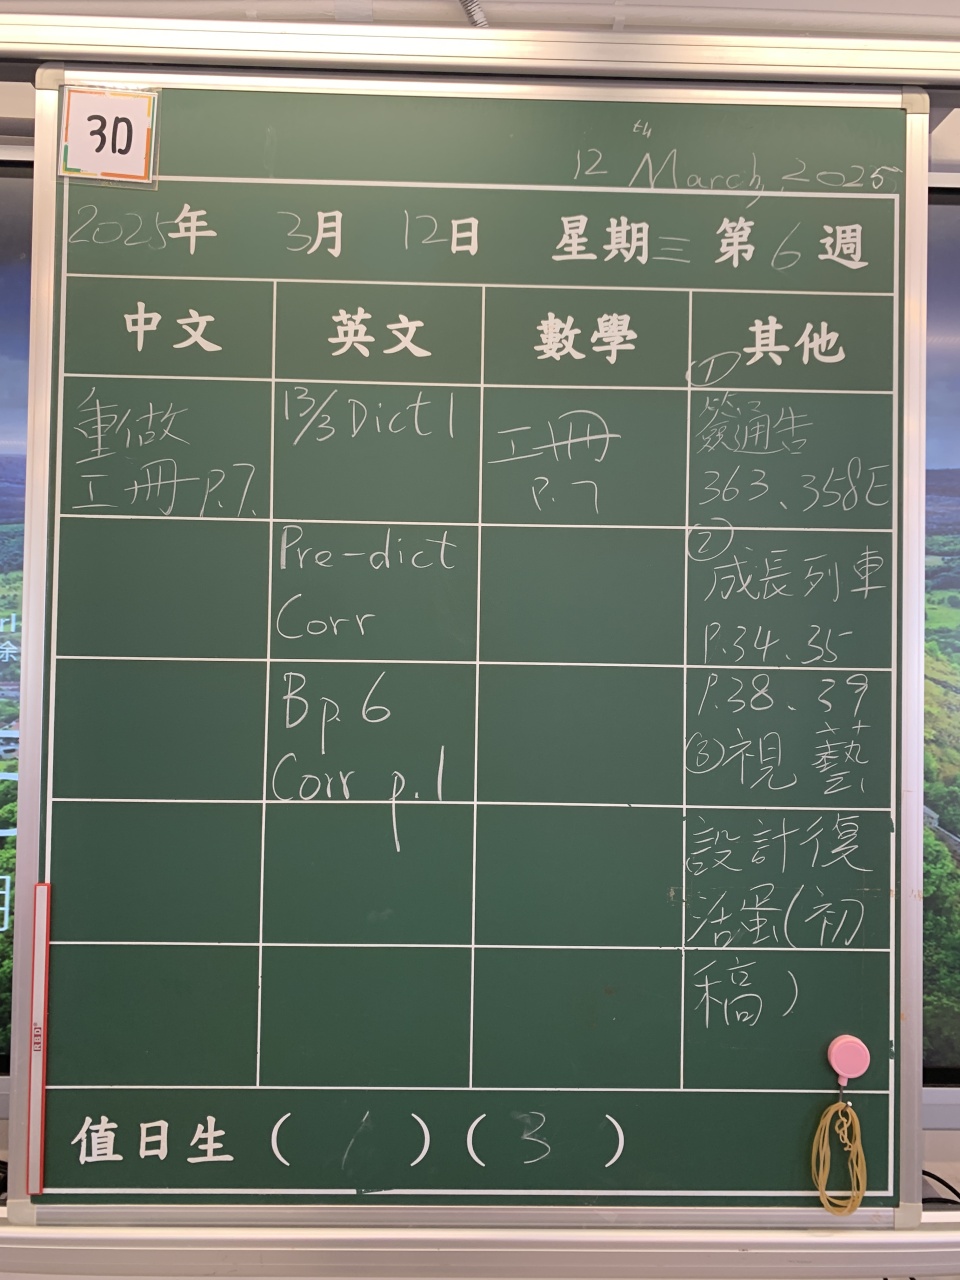 3D
12th March, 2025
2025年 3月 12日 星期三 第6週
中文 英文 數學 其他
重做
工冊 P.7.
13/3 Dict 1
Pre-dict
Corr
Bp. 6
Corr p.1
工冊
P.7
①
簽通告
363、358E
②
成長列車
P.34、35
P.38、39
③視藝
設計復
活蛋(初
稿)
值日生 ( 1 ) ( 3 )